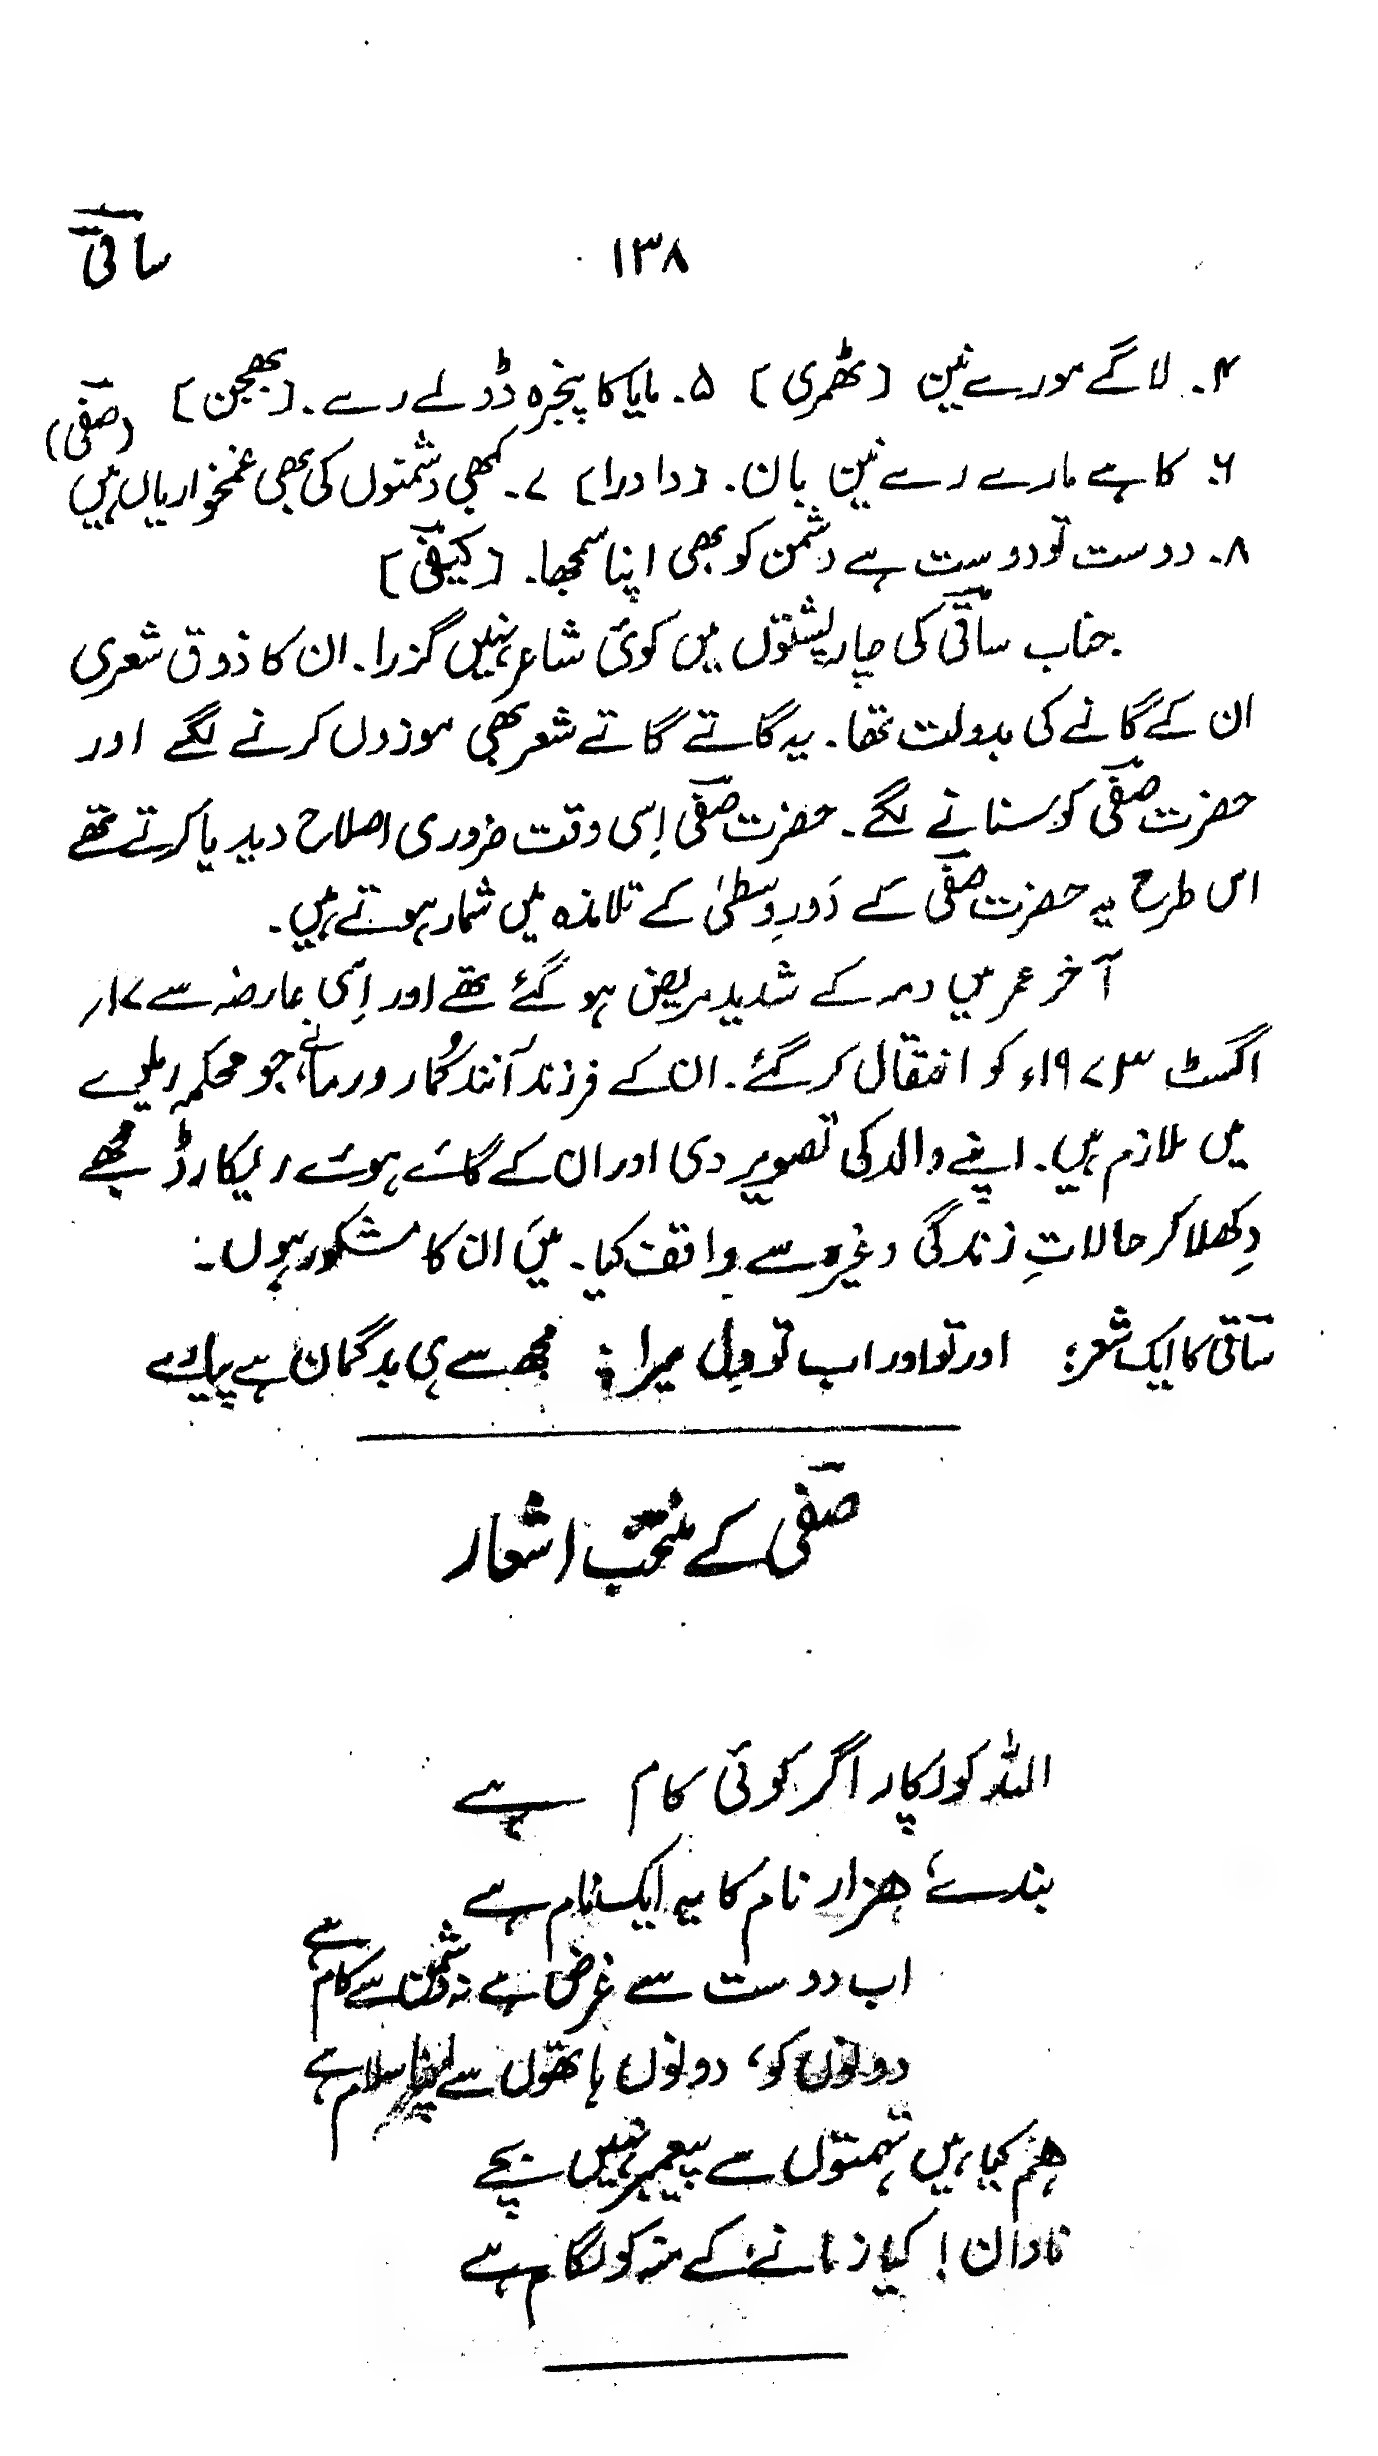 ساقی ۱۳۸
۴۔ لاگے مورے نین [ٹھمری] ۵۔ مایا کا پنجرہ ڈولے رے۔ [بھجن]
۶۔ کاہے مارے رے نین بان۔ [دادرا] ۷۔ کبھی دشمنوں کی بھی غمخواریاں ہیں (صفی)
۸۔ دوست تو دوست ہے دشمن کو بھی اپنا سمجھا۔ [کیفی]
جناب ساقی کی چار پشتوں میں کوئی شاعر نہیں گزرا۔ ان کا ذوق شعری
ان کے گانے کی بدولت تھا۔ یہ گاتے گاتے شعر بھی موزوں کرنے لگے اور
حضرت صفی کو سنانے لگے۔ حضرت صفی اِسی وقت ضروری اصلاح دیدیا کرتے تھے
اس طرح یہ حضرت صفی کے دَورِ وسطیٰ کے تلامذہ میں شمار ہوتے ہیں۔
آخر عمر میں دمہ کے شدید مریض ہو گئے تھے اور اِسی عارضہ سے ۱۷؍
اگسٹ ۱۹۷۳ء کو انتقال کر گئے۔ ان کے فرزند آنند کُمار ورما نے، جو محکمہ ریلوے
میں ملازم ہیں۔ اپنے والد کی تصویر دی اور ان کے گائے ہوئے ریکارڈ مجھے
دِکھلا کر حالاتِ زندگی وغیرہ سے واقف کیا۔ میں ان کا مشکور ہوں۔
ساقی کا ایک شعر: اور تو اور اب تو دِل میرا ؛ مجھ سے ہی بدگمان ہے پیارے
صفی کے منتخب اشعار
اللہ کو پکار اگر کوئی کام ہے
بندے ہزار نام کا یہ ایک نام ہے
اب دوست سے غرض ہے نہ دشمن سے کام ہے
دونوں کو، دونوں ہاتھوں سے اپنا سلام ہے
ہم کیا ہیں تہمتوں سے پیمبر نہیں بچے
نادان! کیا زمانے کے منہ کو لگام ہے